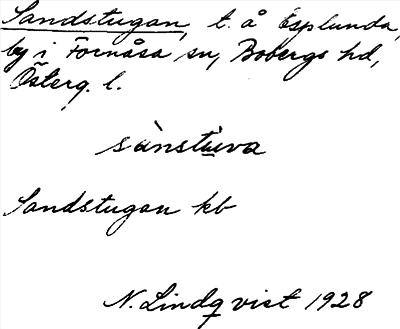 Sandstugan, t. å Esplunda,
by i Fornåsa sn, Bobergs hd,
Österg. l.
sànstùva
Sandstugan kb
N. Lindqvist 1928